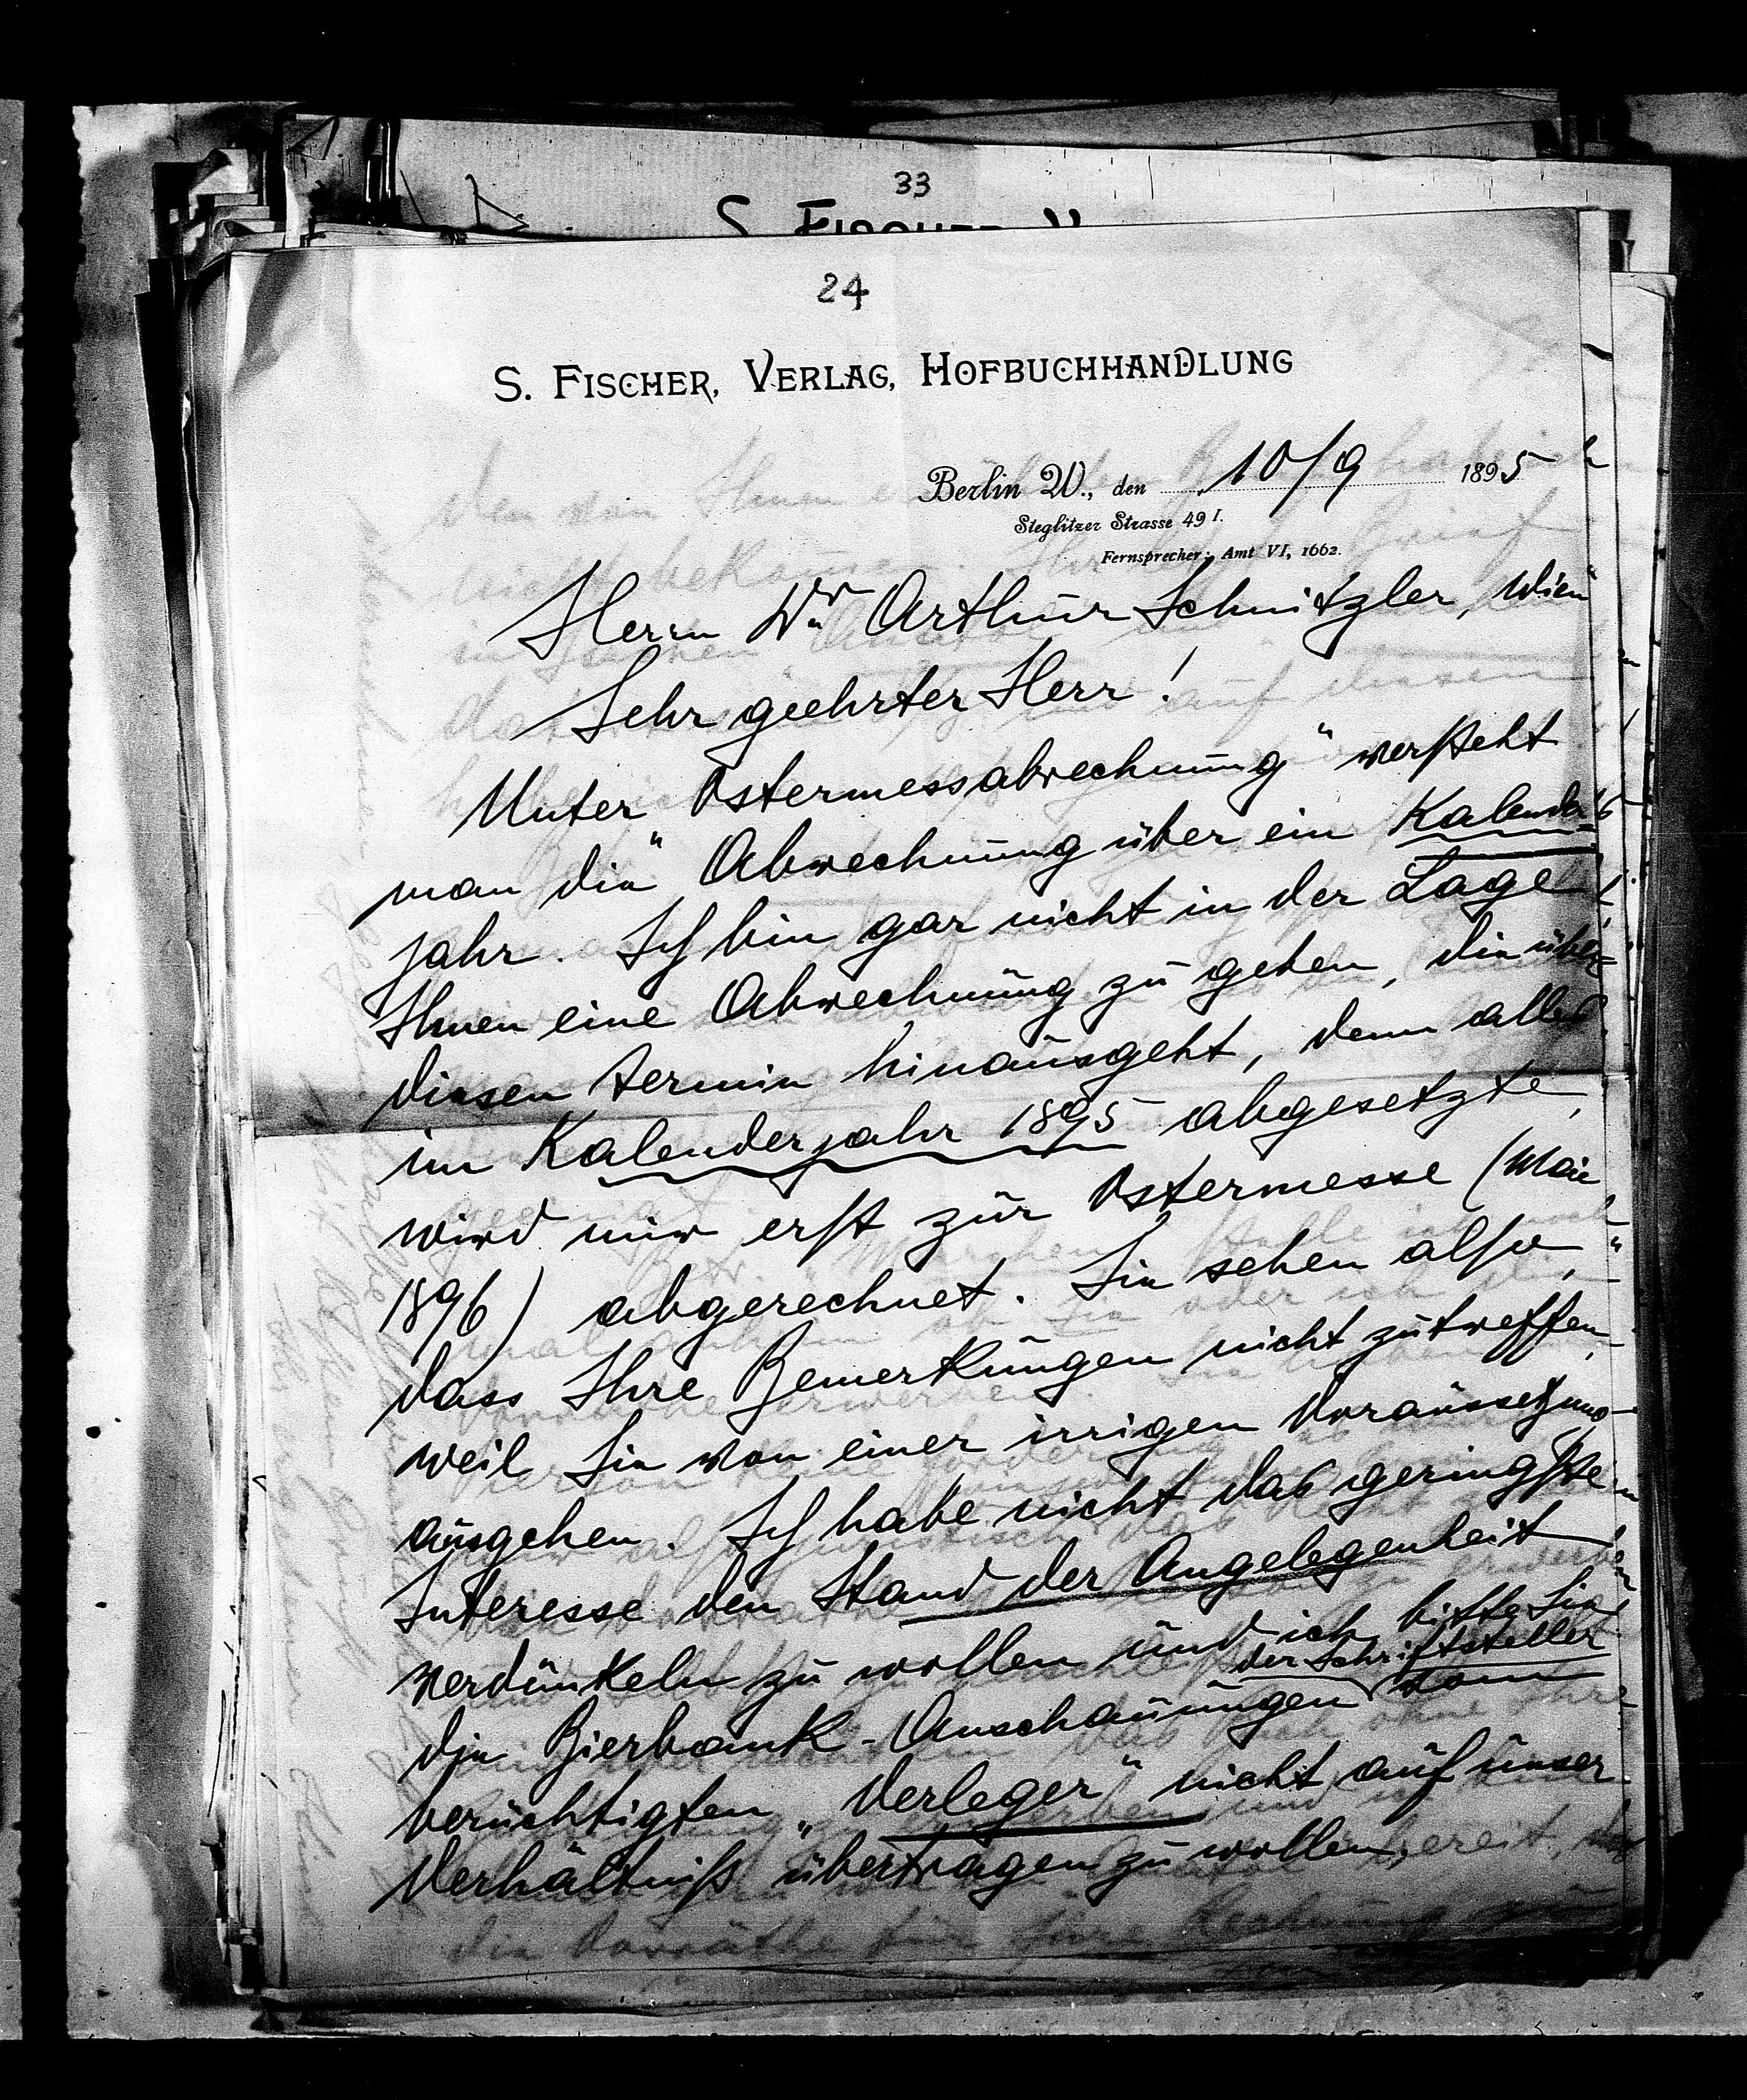 33
24
S. FISCHER, VERLAG, HOFBUCHHANDLUNG
Berlin W., den 10/9 1895
Steglitzer Strasse 49 I.
Fernsprecher: Amt VI, 1662.
Herrn Dr Arthur Schnitzler, Wien
Sehr geehrter Herr!
Unter „Ostermessabrechnung“ versteht
man die Abrechnung über ein Kalender-
jahr. Ich bin gar nicht in der Lage
Ihnen eine Abrechnung zu geben, die über
diesen Termin hinausgeht, denn alles
im Kalenderjahr 1895 abgesetzte,
wird mir erst zur Ostermesse (Mai
1896) abgerechnet. Sie sehen also,
dass Ihre Bemerkungen nicht zutreffen,
weil Sie von einer irrigen Voraussetzung
ausgehen. Ich habe nicht das geringste
Interesse den Stand der Angelegenheit
verdunkeln zu wollen und ich bitte Sie
die Bierbank-Anschauungen der Schriftsteller vom
berüchtigten „Verleger“ nicht auf unser
Verhältniß übertragen zu wollen.